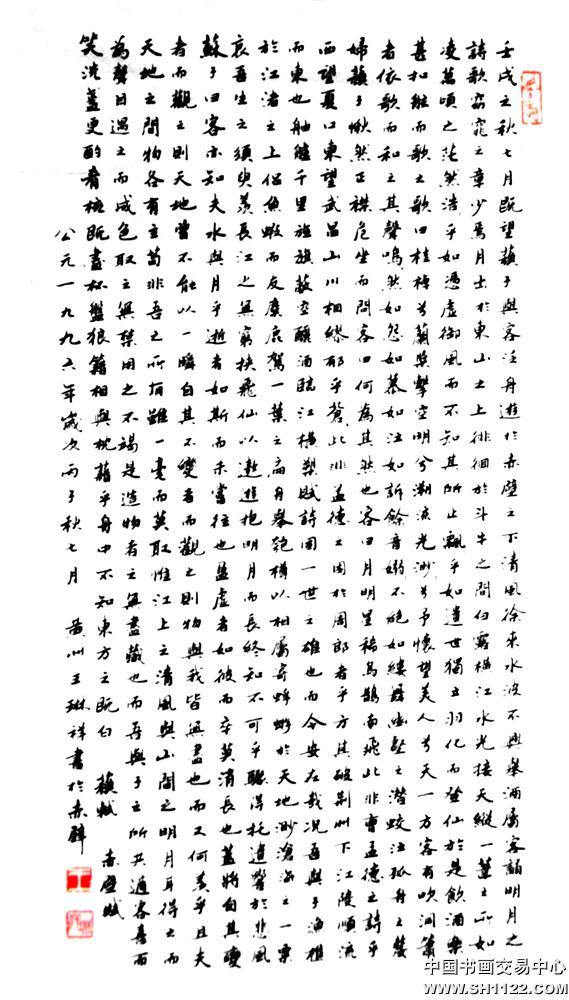 壬戌之秋七月既望蘇子與客泛舟遊於赤壁之下清風徐來水波不興舉酒屬客誦明月之
詩歌窈窕之章少焉月出於東山之上徘徊於斗牛之間白露橫江水光接天縱一葦之所如
凌萬頃之茫然浩乎如憑虛御風而不知其所止飄乎如遺世獨立羽化而登仙於是飲酒樂
甚扣舷而歌之歌曰桂棹兮蘭槳擊空明兮溯流光渺兮予懷望美人兮天一方客有吹洞簫
者依歌而和之其聲嗚然如怨如慕如泣如訴餘音嫋不絕如縷舞幽壑之潛蛟泣孤舟之嫠
婦蘇子愀然正襟危坐而問客曰何為其然也客曰月明星稀烏鵲南飛此非曹孟德之詩乎
西望夏口東望武昌山川相繆郁乎蒼此非孟德之困於周郎者乎方其破荊州下江陵順流
而東也舳艫千里旌旗蔽空釃酒臨江橫槊賦詩固一世之雄也而今安在哉況吾與子漁樵
於江渚之上侶魚蝦而友麋鹿駕一葉之扁舟舉匏樽以相屬寄蜉蝣於天地渺滄海之一粟
哀吾生之須臾羨長江之無窮挾飛仙以遨遊抱明月而長終知不可乎驟得托遺響於悲風
蘇子曰客亦知夫水與月乎逝者如斯而未嘗往也盈虛者如彼而卒莫消長也蓋將自其變
者而觀之則天地曾不能以一瞬自其不變者而觀之則物與我皆無盡也而又何羨乎且夫
天地之間物各有主苟非吾之所有雖一毫而莫取惟江上之清風與山間之明月耳得之而
為聲目遇之而成色取之無禁用之不竭是造物者之無盡藏也而吾與子之所共適客喜而
笑洗盞更酌肴核既盡杯盤狼籍相與枕藉乎舟中不知東方之既白 蘇軾 赤壁賦
公元一九九六年歲次丙子秋七月 黃州王琳祥書於赤壁
中国书画交易中心
www.SH1122.com